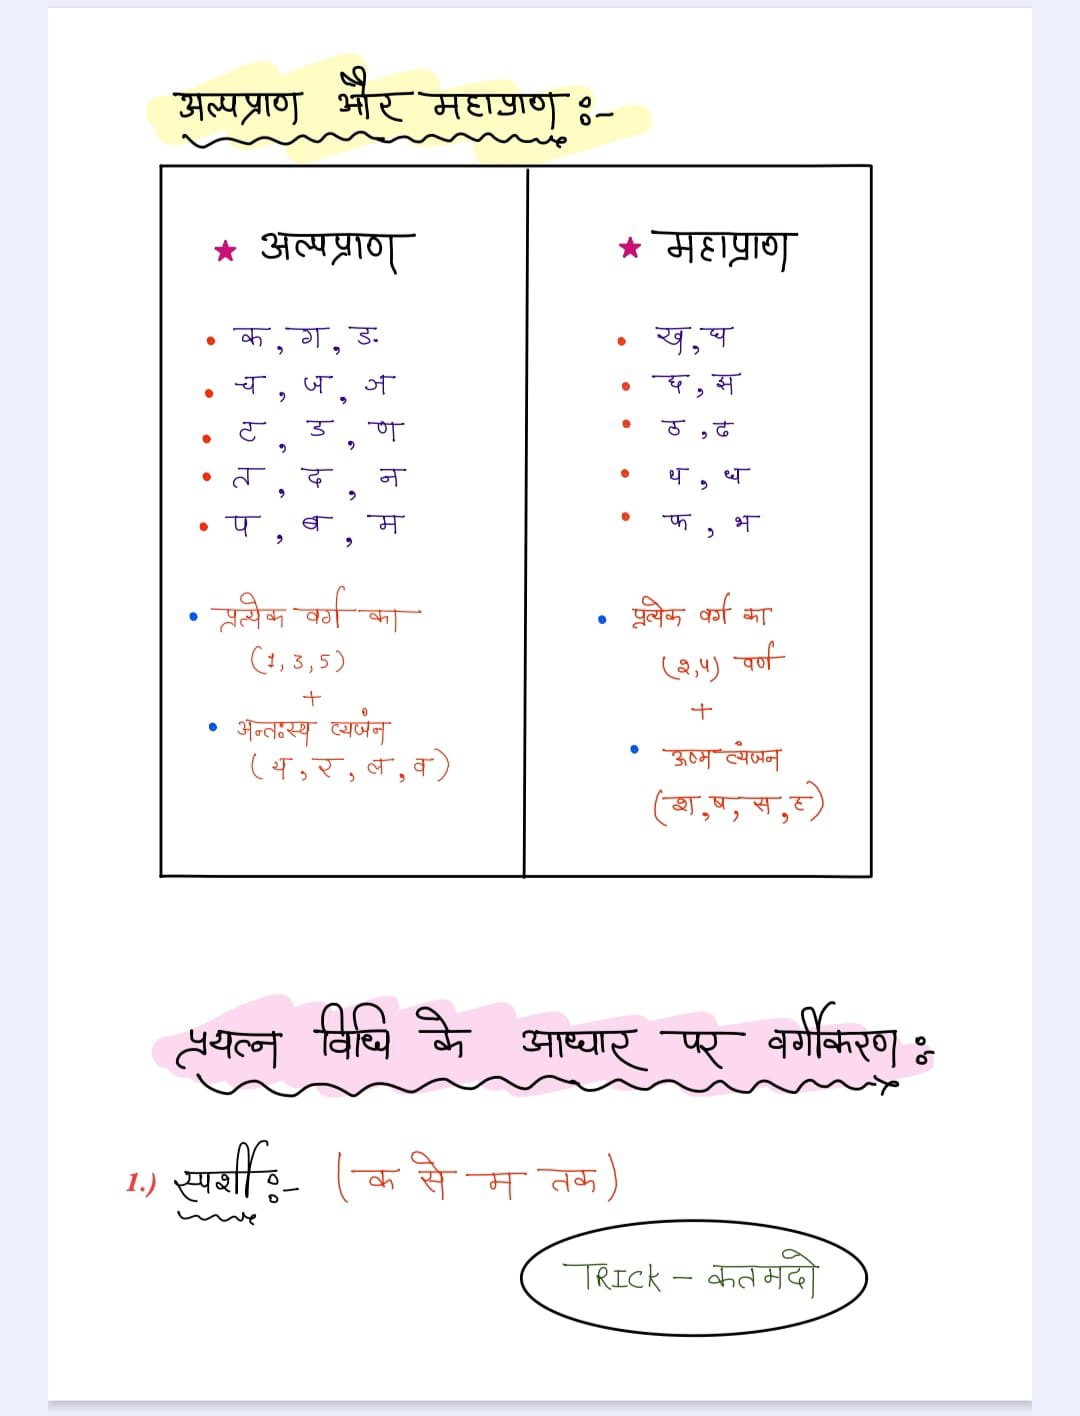 अल्पप्राण और महाप्राण :-
★ अल्पप्राण
• क, ग, ङ
• च, ज, ञ
• ट, ड, ण
• त, द, न
• प, ब, म
• प्रत्येक वर्ग का
(1, 3, 5)
+
• अन्तःस्थ व्यजंन
(य, र, ल, व)
★ महाप्राण
• ख, घ
• छ, झ
• ठ, ढ
• थ, ध
• फ, भ
• प्रत्येक वर्ग का
(2, 4) वर्ण
+
• ऊष्म व्यंजन
(श, ष, स, ह)
प्रयत्न विधि के आधार पर वर्गीकरण :-
1.) स्पर्शी :- (क से म तक)
TRICK - कतमदो